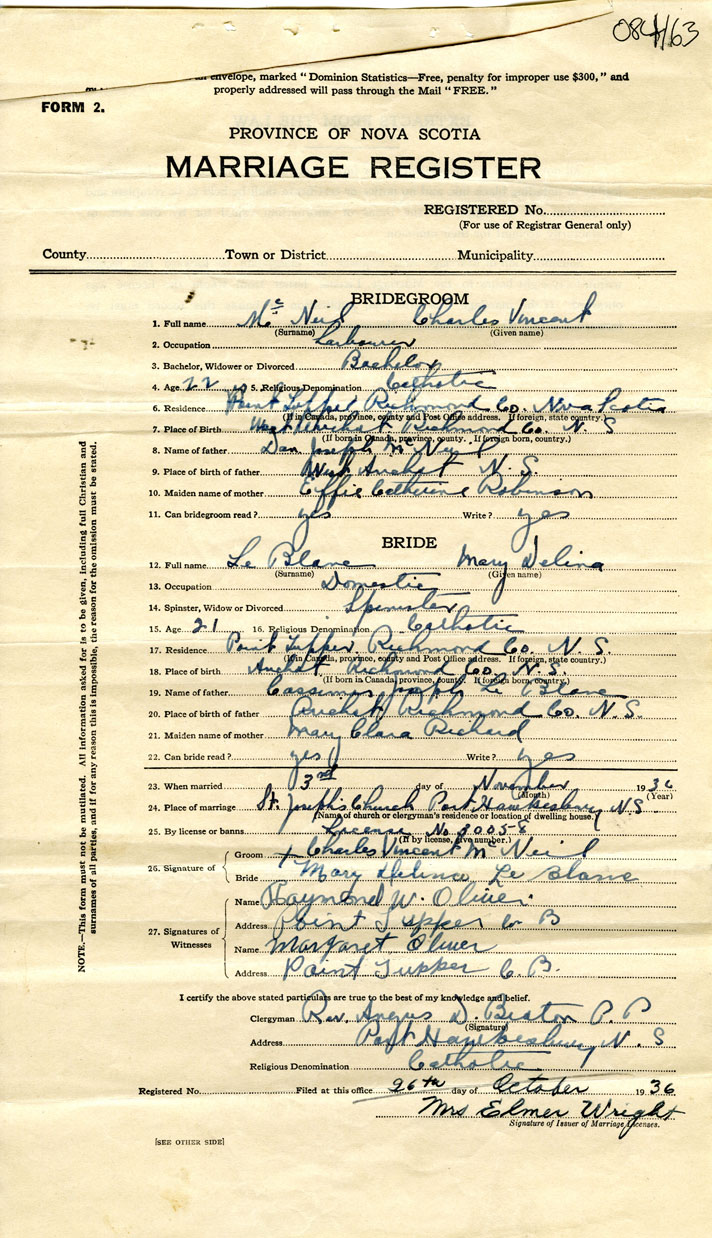 084163
an envelope, marked "Dominion Statistics—Free, penalty for improper use $300," and
properly addressed will pass through the Mail "FREE."
FORM 2.
PROVINCE OF NOVA SCOTIA
MARRIAGE REGISTER
REGISTERED No.
(For use of Registrar General only)
County Town or District Municipality
BRIDEGROOM
1. Full name Mc Neil Charles Vincent
(Surname) (Given name)
2. Occupation Labourer
3. Bachelor, Widower or Divorced Bachelor
4. Age 22 5. Religious Denomination Catholic
6. Residence Point Tupper Richmond Co. Nova Scotia
(If in Canada, province, county and Post Office address. If foreign, state country.)
7. Place of Birth West Arichat Richmond Co. N. S
(If born in Canada, province, county. If foreign born, country.)
8. Name of father Dan Joseph McNeil
9. Place of birth of father West Arichat N. S.
10. Maiden name of mother Effie Catherine Robinson
11. Can bridegroom read? yes Write? yes
BRIDE
12. Full name Le Blanc Mary Delina
(Surname) (Given name)
13. Occupation Domestic
14. Spinster, Widow or Divorced Spinster
15. Age 21 16. Religious Denomination Catholic
17. Residence Point Tupper, Richmond Co. N. S.
(If in Canada, province, county and Post Office address. If foreign, state country.)
18. Place of birth Arichat Richmond Co. N. S.
(If born in Canada, province, county. If foreign born, country.)
19. Name of father Cassimer Joseph Le Blanc
20. Place of birth of father Arichat Richmond Co. N. S.
21. Maiden name of mother Mary Clara Richard
22. Can bride read? yes Write? yes
23. When married 3rd day of November 1936
(Month) (Year)
24. Place of marriage St. Josephs Church Port Hawkesbury N.S.
(Name of church or clergyman's residence or location of dwelling house.)
25. By license or banns License No 30058
(If by license, give number.)
26. Signature of Groom Charles Vincent McNeil
Bride Mary Delina Le Blanc
27. Signatures of Witnesses
Name Raymond W. Oliver
Address Point Tupper C. B
Name Margaret Oliver
Address Point Tupper C. B.
I certify the above stated particulars are true to the best of my knowledge and belief.
Clergyman Rev. Angus D. Beaton P. P
(Signature)
Address Port Hawkesbury N. S
Religious Denomination Catholic
Registered No. Filed at this office 26th day of October 1936
Mrs Elmer Wright
Signature of Issuer of Marriage Licenses.
[SEE OTHER SIDE]
NOTE.—This form must not be mutilated. All information asked for is to be given, including full Christian and
surnames of all parties, and if for any reason this is impossible, the reason for the omission must be stated.